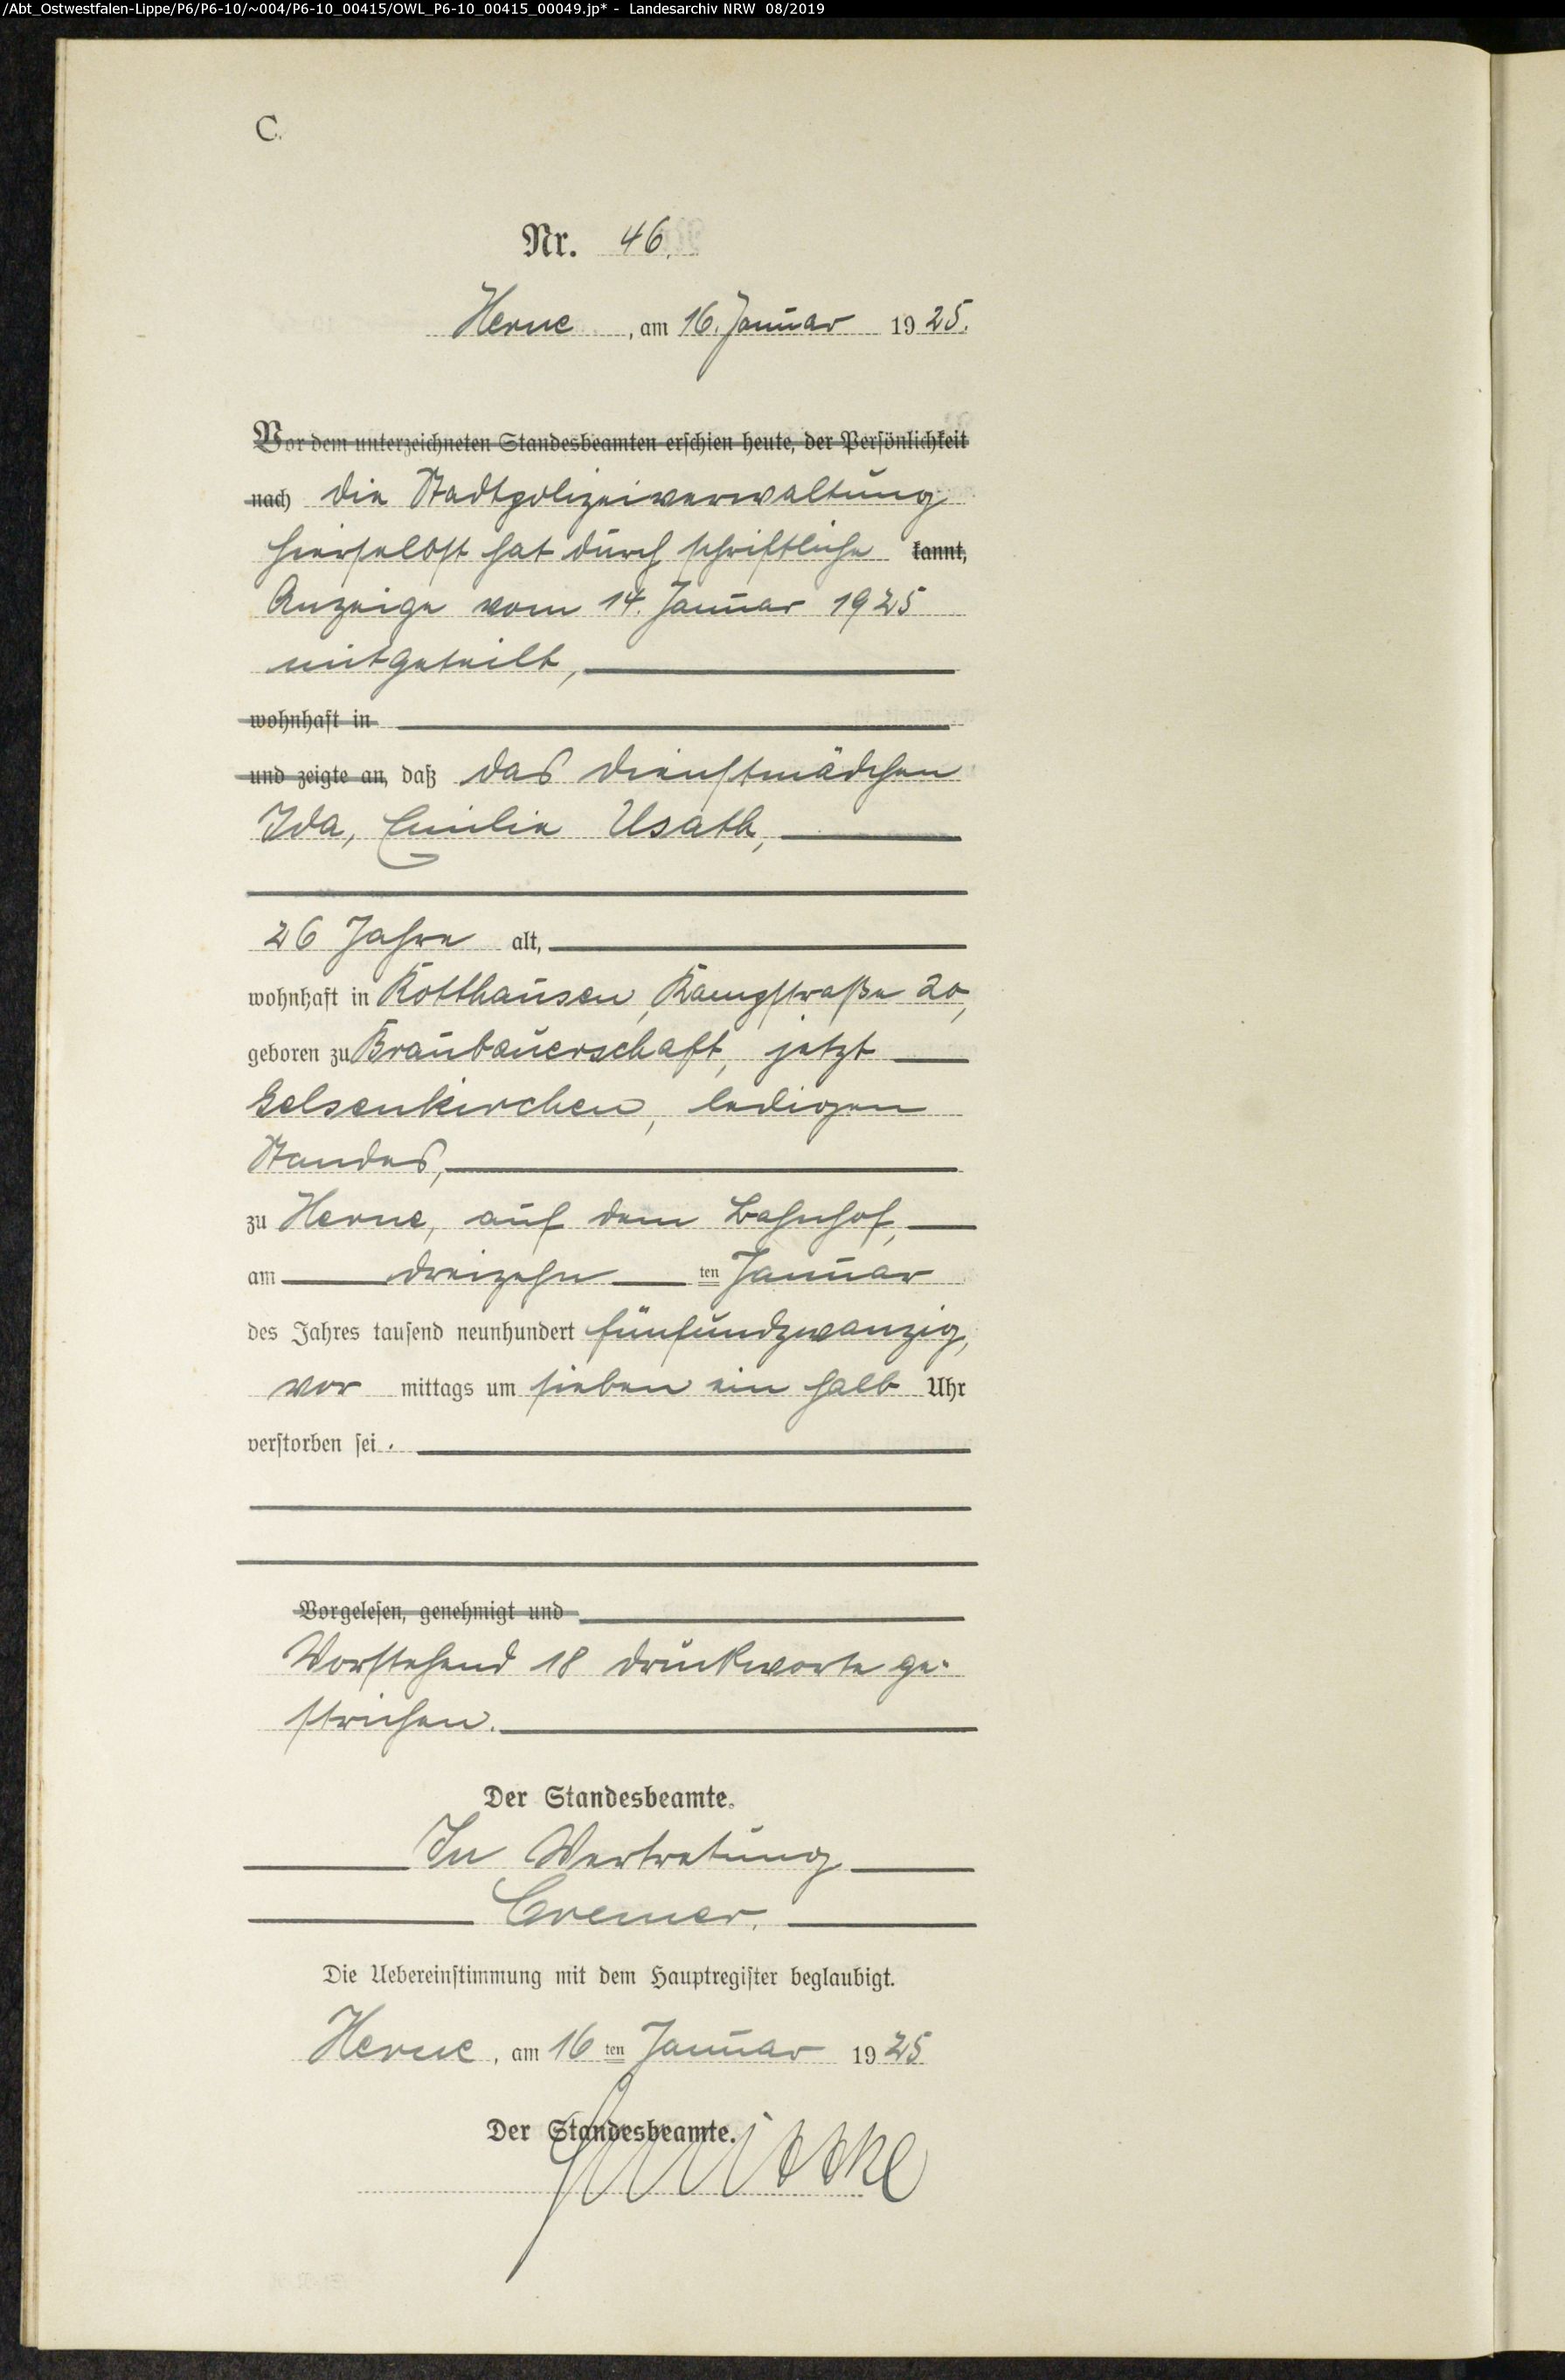 /Abt_Ostwestfalen-Lippe/P6/P6-10/~004/P6-10_00415/OWL_P6-10_00415_00049.jp* - Landesarchiv NRW 08/2019
C.
Nr. 46.
Herne, am 16. Januar 1925.
Vor dem unterzeichneten Standesbeamten erschien heute, der Persönlichkeit
nach die Stadtpolizeiverwaltung
hierselbst hat durch schriftliche kannt,
Anzeige vom 14. Januar 1925
mitgeteilt,
wohnhaft in
und zeigte an, daß das Dienstmädchen
Ida, Emilie Usath,
26 Jahre alt,
wohnhaft in Rotthausen, Kampstraße 20,
geboren zu Braubauerschaft, jetzt
Gelsenkirchen, ledigen
Standes,
zu Herne, auf dem Bahnhof,
am dreizehn ten Januar
des Jahres tausend neunhundert fünfundzwanzig,
vor mittags um sieben ein halb Uhr
verstorben sei.
Vorgelesen, genehmigt und
Vorstehend 18 Druckworte ge-
strichen.
Der Standesbeamte.
In Vertretung
Cremer.
Die Uebereinstimmung mit dem Hauptregister beglaubigt.
Herne, am 16 ten Januar 1925
Der Standesbeamte.